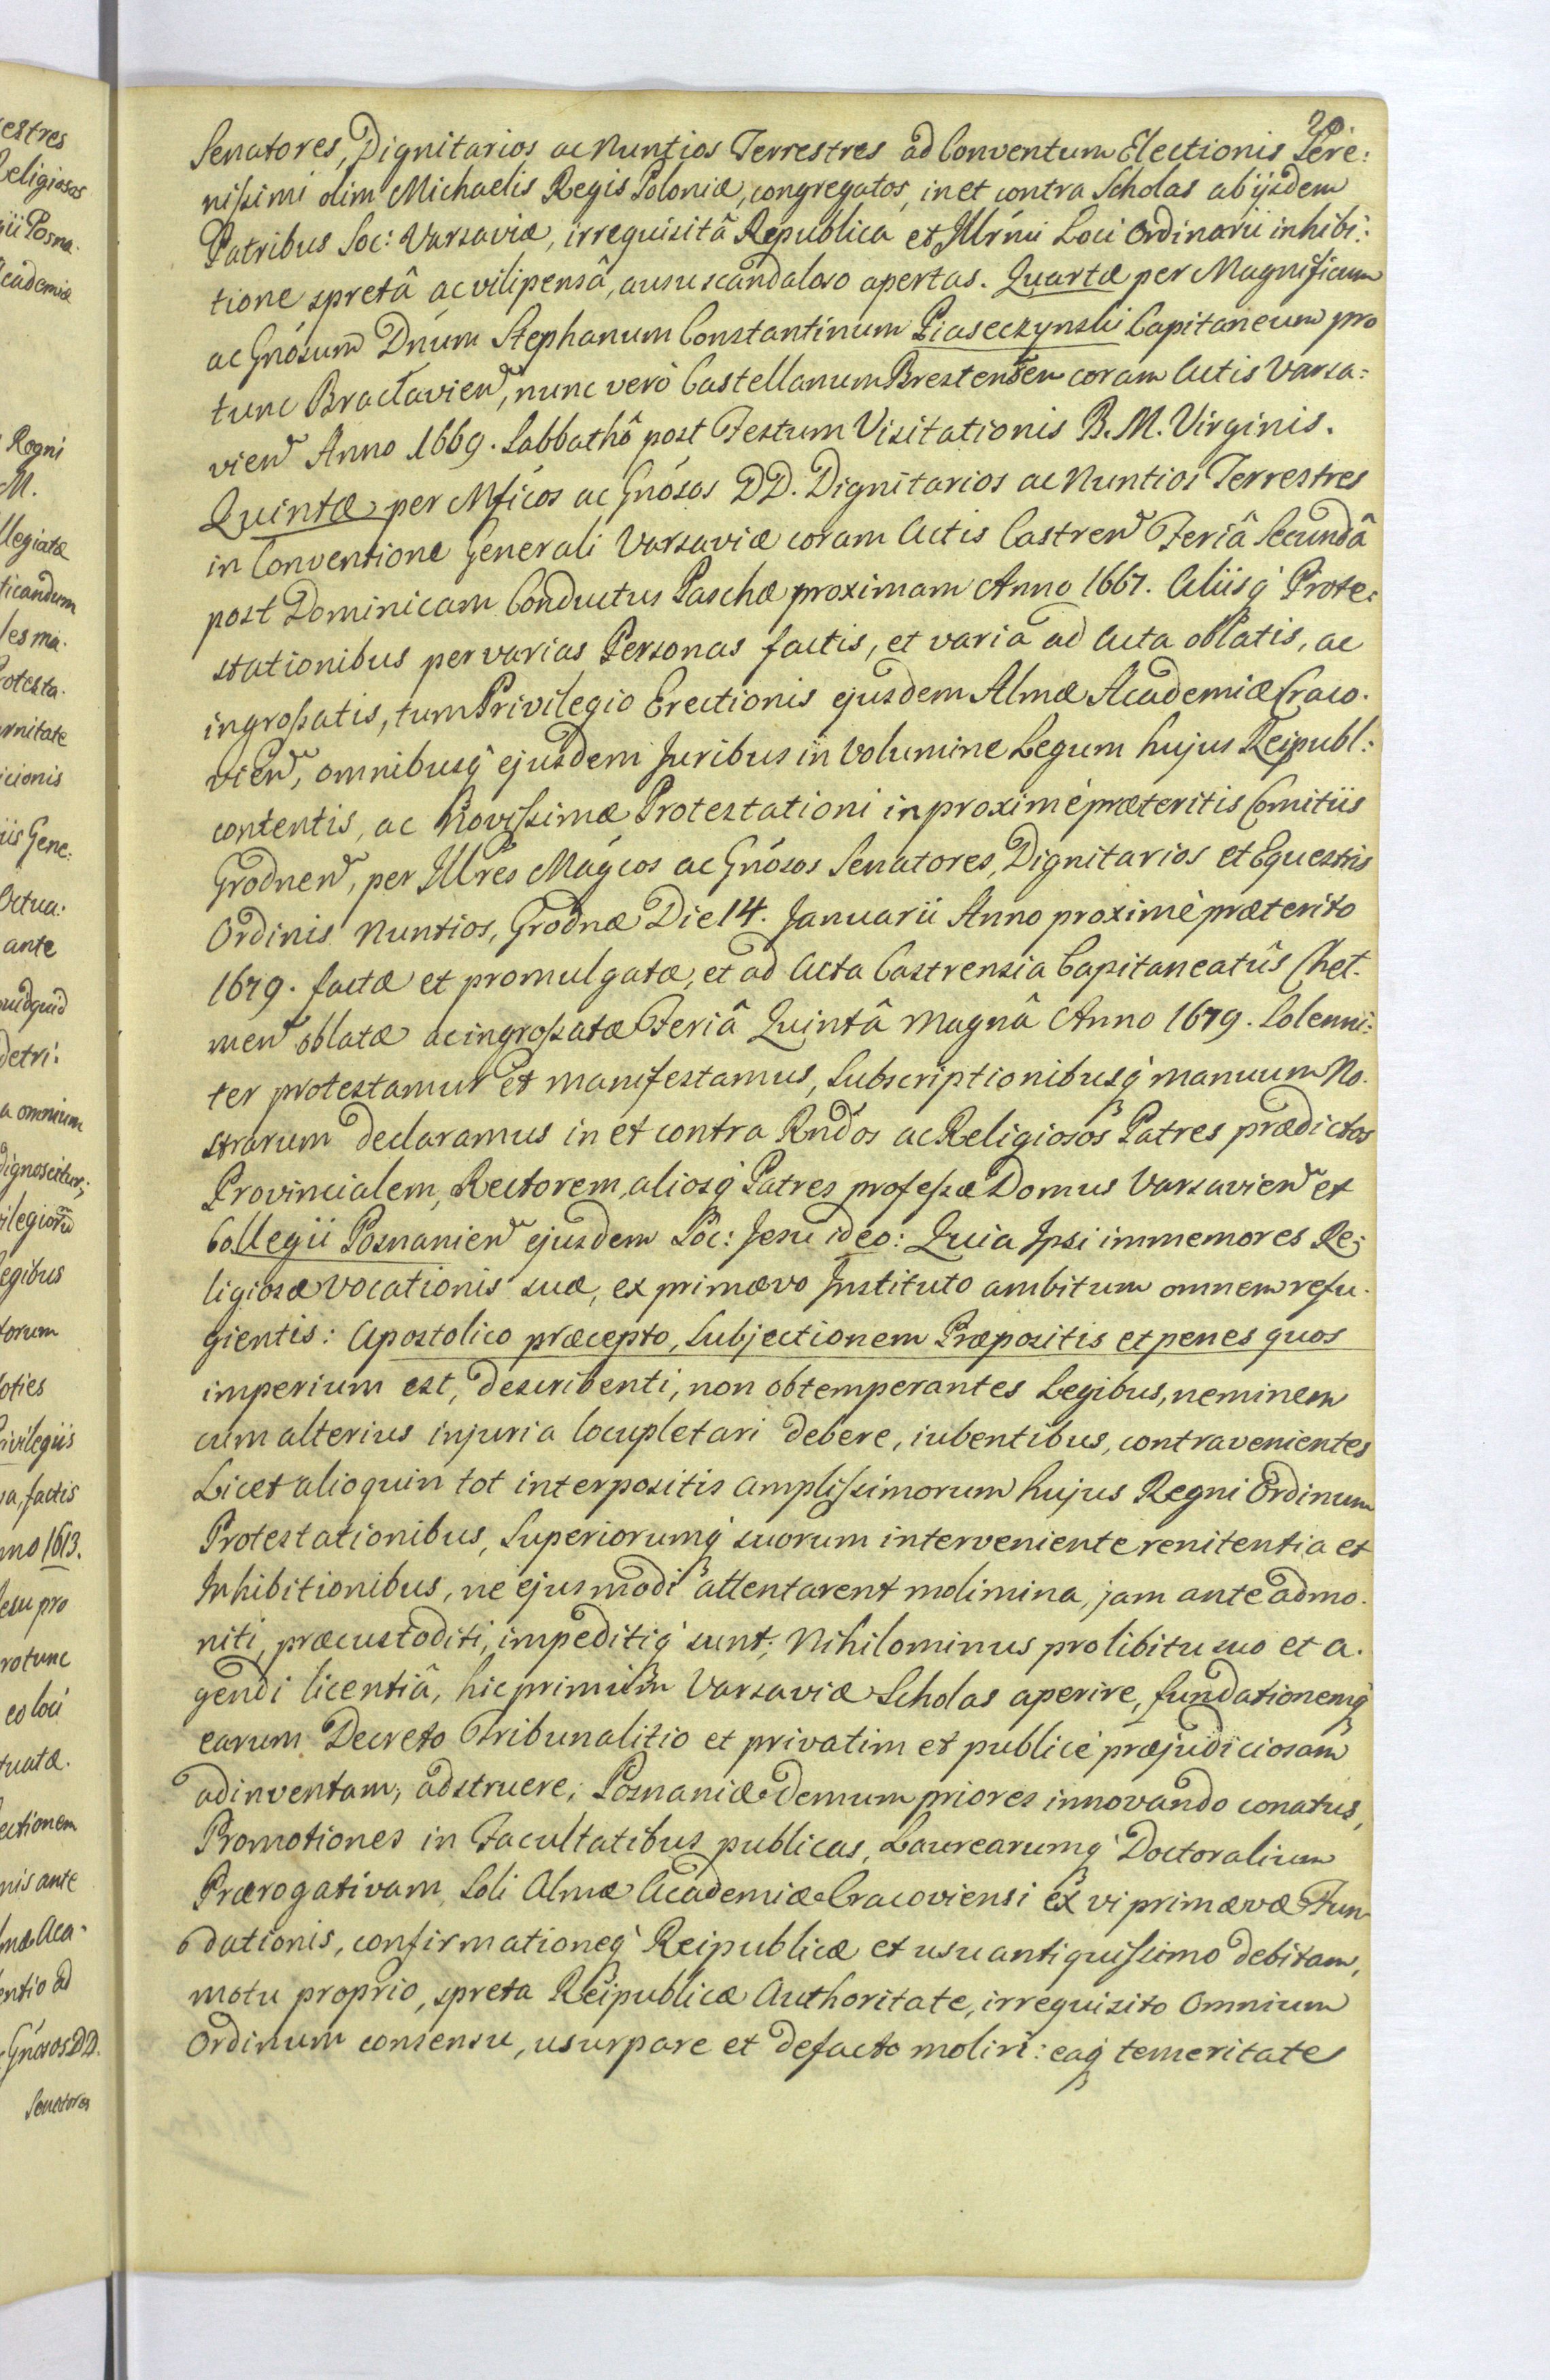 20
Senatores, Dignitarios ac Nuntios Terrestres ad Conventum Electionis Sere:
nissimi olim Michaelis Regis Poloniæ, congregatos, in et contra Scholas ab ijsdem
Patribus Soc: Varsaviæ, irrequisitâ Republica et Illrmi Loci Ordinarii inhibi:
tione spretâ ac vilipensâ, ausu scandaloso apertas. Quartæ per Magnificum
ac Gnosum Dnum Stephanum Constantinum Piaseczynski Capitaneum pro
tunc Braclavien, nunc verò Castellanum Brestensem coram Actis Varsa:
vien Anno 1669. Sabbathô post Festum Visitationis B. M. Virginis.
Quintæ per Mficos ac Gnósos DD. Dignitarios ac Nuntios Terrestres
in Conventione Generali Varsaviæ coram Actis Castren Feriâ Secundâ
post Dominicam Conductus Paschæ proximam Anno 1667. Aliisq Prote:
stationibus per varias Personas factis, et varia ad Acta oblatis, ac
ingrossatis, tum Privilegio Erectionis ejusdem Almæ Academiæ Craco.
vien, omnibusq ejusdem Juribus in Volumine Legum hujus Reipubl:
contentis, ac Novissimæ Protestationi in proximè præteritis Comitiis
Grodnen, per Illres Magcos ac Gnósos Senatores, Dignitarios et Equestris
Ordinis Nuntios, Grodnæ Die 14. Januarii Anno proximè præterito
1679. factæ et promulgatæ, et ad Acta Castrensia Capitaneatûs Chel.
men oblatæ ac ingrossatæ Feriâ Quintâ Magnâ Anno 1679. Solenni:
ter protestamur et manifestamus, Subscriptionibusq manuum No.
strarum declaramus in et contra Rndos ac Religiosos Patres prædictos
Provincialem, Rectorem, aliosq Patres professæ Domus Varsavien et
Collegii Posnanien ejusdem Soc: Jesu ideo: Quia Ipsi immemores Re;
ligiosæ vocationis suæ, ex primævo Instituto ambitum omnem refu.
gientis: Apostolico præcepto, Subjectionem Præpositis et penes quos
imperium est, describenti, non obtemperantes Legibus, neminem
cum alterius injuria locupletari debere, iubentibus, contravenientes
Licet alioquin tot interpositis amplissimorum hujus Regni Ordinum
Protestationibus, Superiorumq suorum interveniente renitentia et
Inhibitionibus, ne ejusmodi attentarent molimina, jam ante admo.
niti, præcustoditi, impeditiq sunt; Nihilominus pro libitu suo et a.
gendi licentiâ, hic primum Varsaviæ Scholas aperire, fundationemq
earum Decreto Tribunalitio et privatim et publicè præjudiciosam
adinventam, adstruere; Posnaniæ demum priores innovando conatus,
Promotiones in Facultatibus publicas, Laurearumq Doctoralium
Prærogativam, Soli Almæ Academiæ Cracoviensi ex vi primævæ Fun
dationis, confirmationeq Reipublicæ et usu antiquissimo debitam,
motu proprio, spreta Reipublicæ Authoritate, irrequisito Omnium
Ordinum consensu, usurpare et defacto moliri: eaq temeritate